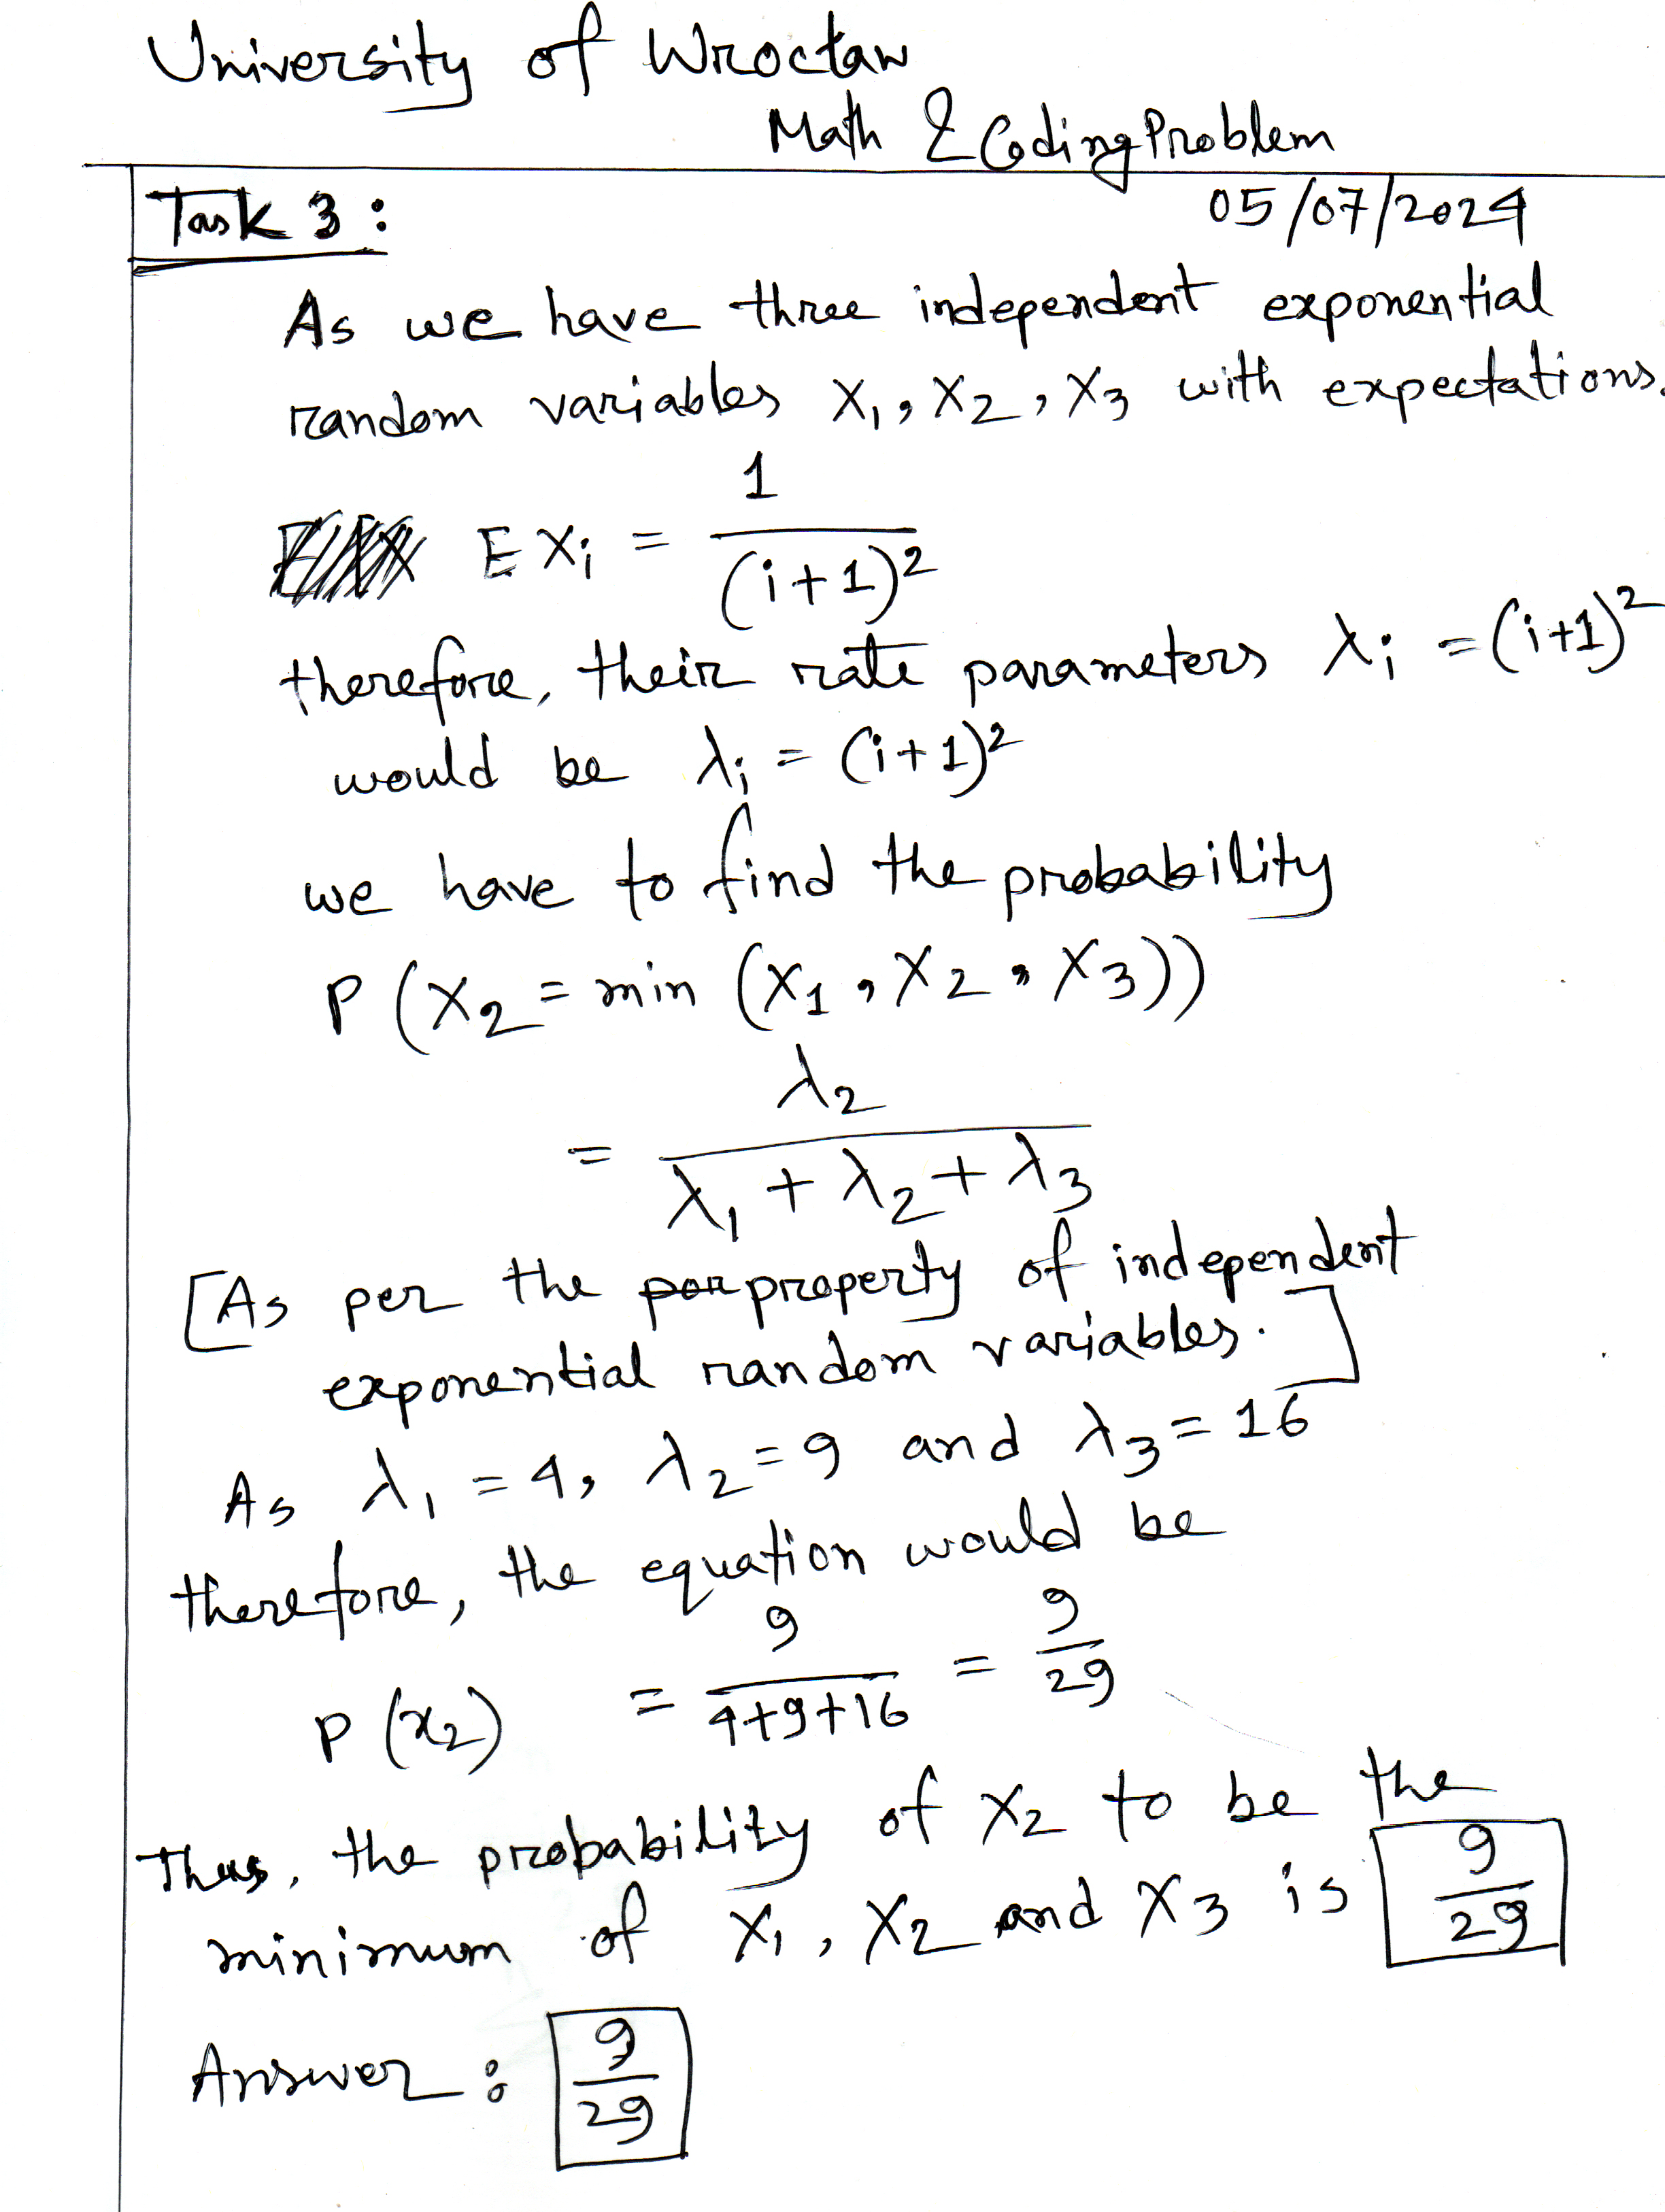 University of Wroctaw
Math & Coding Problem
Task 3 :
05/07/2024
As we have three independent exponential
random variables X₁, X₂, X₃ with expectations.
E Xᵢ = 1/(i+1)²
therefore, their rate parameters λᵢ = (i+1)²
would be λᵢ = (i+1)²
we have to find the probability
P (X₂ = min (X₁, X₂, X₃))
= λ₂/(λ₁ + λ₂ + λ₃)
[As per the por property of independent
exponential random variables.]
As λ₁ = 4, λ₂ = 9 and λ₃ = 16
therefore, the equation would be
P (x₂) = 9/(4+9+16) = 9/29
Thus, the probability of X₂ to be the
minimum of X₁, X₂ and X₃ is 9/29
Answer : 9/29